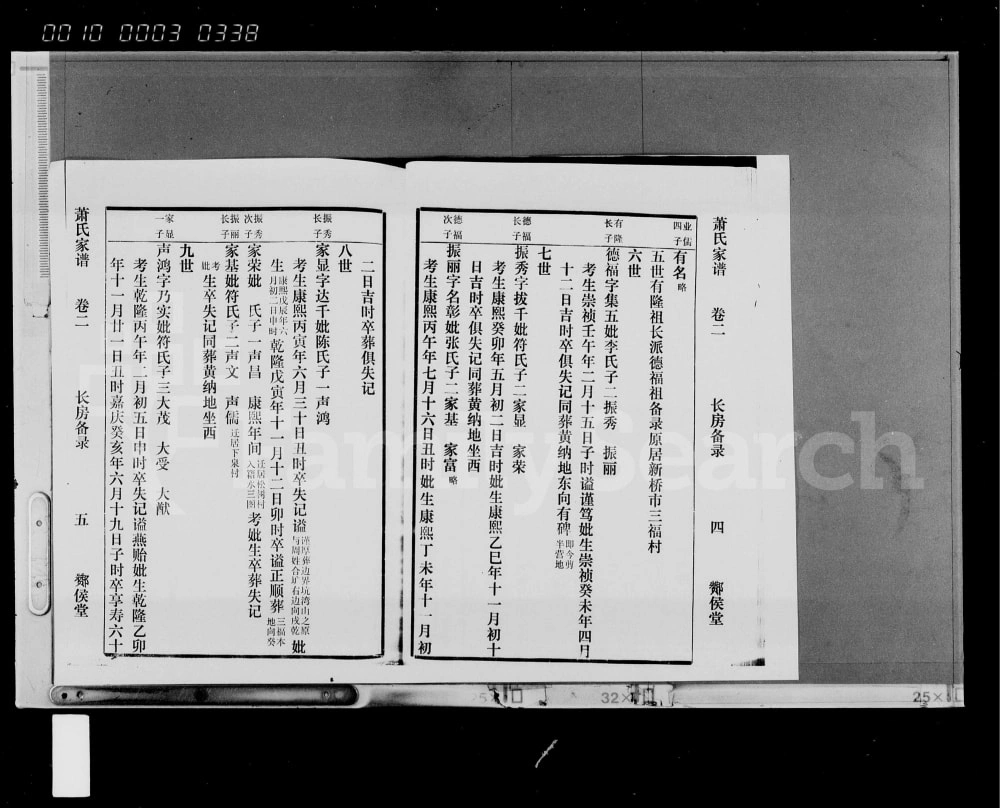 0010 0003 0338
萧氏家谱 卷二 长房备录 四 酂侯堂
业儒四子
有名略
五世有隆祖长派德福祖备录原居新桥市三福村
六世
有隆长子
德福字集五妣李氏子二振秀 振丽
考生崇祯壬午年二月十五日子时谥谨笃妣生崇祯癸未年四月
十二日吉时卒俱失记同葬黄纳地东向有碑即今剪半营地
七世
德福长子
振秀字拔千妣符氏子二家显 家荣
考生康熙癸卯年五月初二日吉时妣生康熙乙巳年十一月初十
日吉时卒俱失记同葬黄纳地坐西
德福次子
振丽字名彰妣张氏子二家基 家富略
考生康熙丙午年七月十六日丑时妣生康熙丁未年十一月初
二日吉时卒葬俱失记
八世
振秀长子
家显字达千妣陈氏子一声鸿
考生康熙丙寅年六月三十日丑时卒失记谥谨厚葬边界坑湾山之原与周姓合圹右边向戌乾妣
生康熙戊辰年六月初二日申时乾隆戊寅年十一月十二日卯时卒谥正顺葬三福本地向癸
振秀次子
家荣妣 氏子一声昌 康熙年间迁居松树村入籍东三图考妣生卒葬失记
振丽长子
家基妣符氏子二声文 声儒迁居下泉村
考妣生卒失记同葬黄纳地坐西
九世
家显一子
声鸿字乃实妣符氏子三大茂 大受 大猷
考生乾隆丙午年二月初五日申时卒失记谥燕贻妣生乾隆乙卯
年十一月廿一日丑时嘉庆癸亥年六月十九日子时卒享寿六十
萧氏家谱 卷二 长房备录 五 酂侯堂
FamilySearch
32×
25×